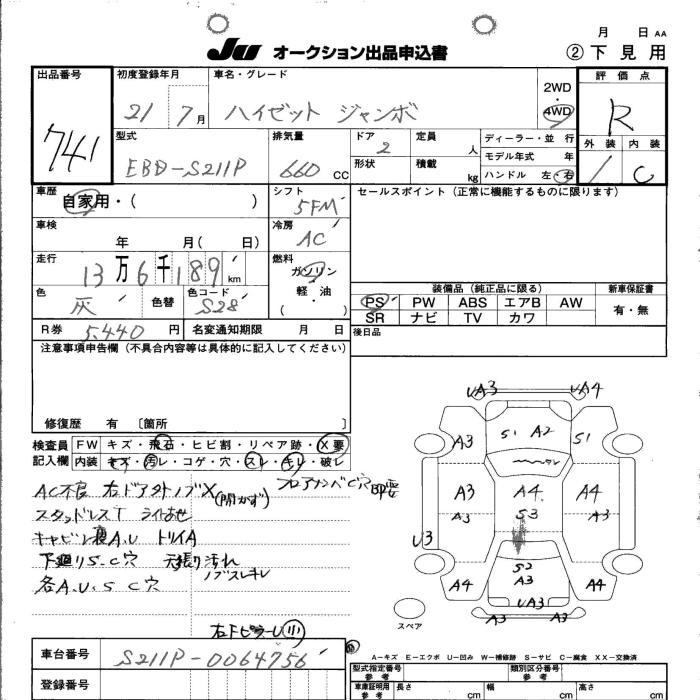 月 日 AA
JU オークション出品申込書
② 下見用
出品番号 741
初度登録年月 21 7月
車名・グレード ハイゼット ジャンボ
2WD・4WD
評価点 R
外装 1 内装 C
型式 EBD-S211P
排気量 660 CC
ドア 2
定員 人
形状
積載 kg
ディーラー・並行
モデル年式 年
ハンドル 左・右
車歴 自家用・( )
シフト 5FM
セールスポイント (正常に機能するものに限ります)
車検 年 月( 日)
冷房 AC
走行 13万6千189km
燃料 ガソリン・軽・油・( )
色 灰 色替 色コード S28
装備品 (純正品に限る)
新車保証書 有・無
PS PW ABS エアB AW
SR ナビ TV カワ
R券 5,440 円 名変通知期限 月 日
後日品
注意事項申告欄 (不具合内容等は具体的に記入してください)
修復歴 有 [箇所 ]
検査員記入欄
FW キズ・飛石・ヒビ割・リペア跡・X要
内装 キズ・汚レ・コゲ・穴・スレ・キレ・破レ
AC不良 右ドアアウトノブX(開かず) フロアメンバC穴
スタッドレスT ライトあせ
キャビン裏A.U トリイA
下廻りS.C穴 天張り汚れ
ノブスレキレ
各A.U.S C穴
右FピラーU(小)
UA3 UA4
A3 S1 A2 S1
A3 A4 A4
A3 S3 A3
U3
S2
A4 A3 A4
UA3
A3 A3
スペア
A-キズ E-エクボ U-凹み W-補修跡 S-サビ C-腐食 XX-交換済
車台番号 S211P-0064756
登録番号
型式指定番号 参考
類別区分番号 参考
車庫証明用 参考 長さ cm 幅 cm 高さ cm